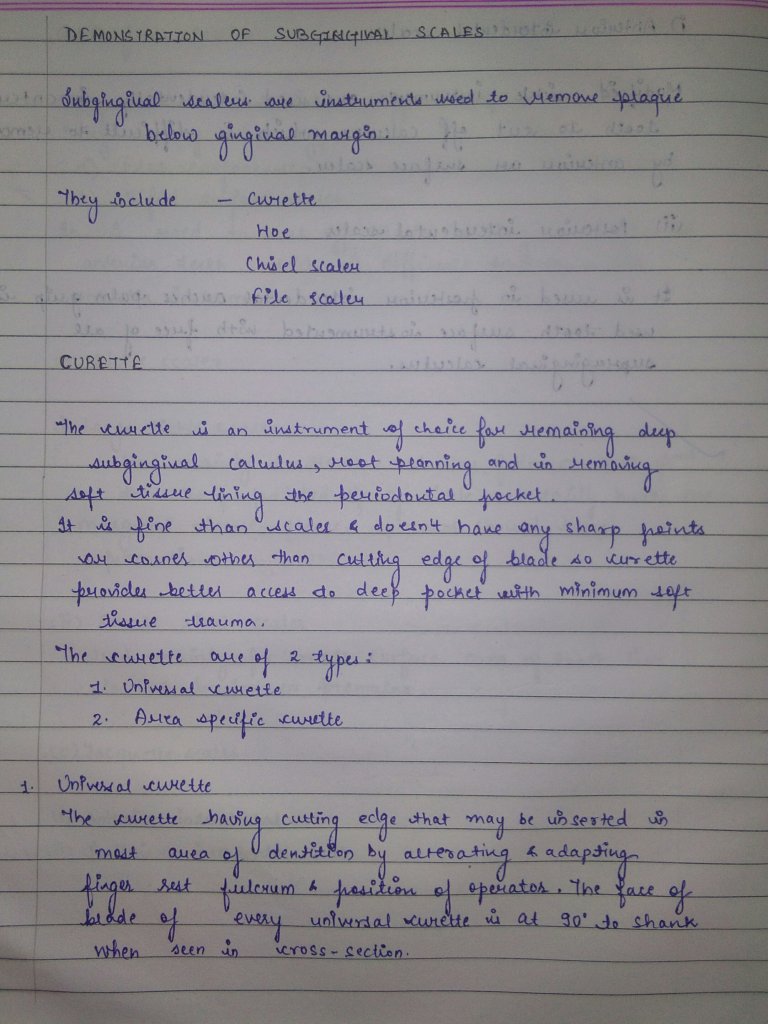 DEMONSTRATION OF SUBGINGIVAL SCALES
Subgingival scalers are instruments used to remove plaque
below gingival margin.
They include - Curette
Hoe
Chisel scaler
File scaler
CURETTE
The curette is an instrument of choice for remaining deep
subgingival calculus, root planning and in removing
soft tissue lining the periodontal pocket.
It is fine than scales & doesn't have any sharp points
or corner other than cutting edge of blade so curette
provides better access to deep pocket with minimum soft
tissue trauma.
The curette are of 2 types:
1. Universal curette
2. Area specific curette
1. Universal curette
The curette having cutting edge that may be inserted in
most area of dentition by alterating & adapting
finger rest fulcrum & position of operator. The face of
blade of every universal curette is at 90° to shank
when seen in cross-section.